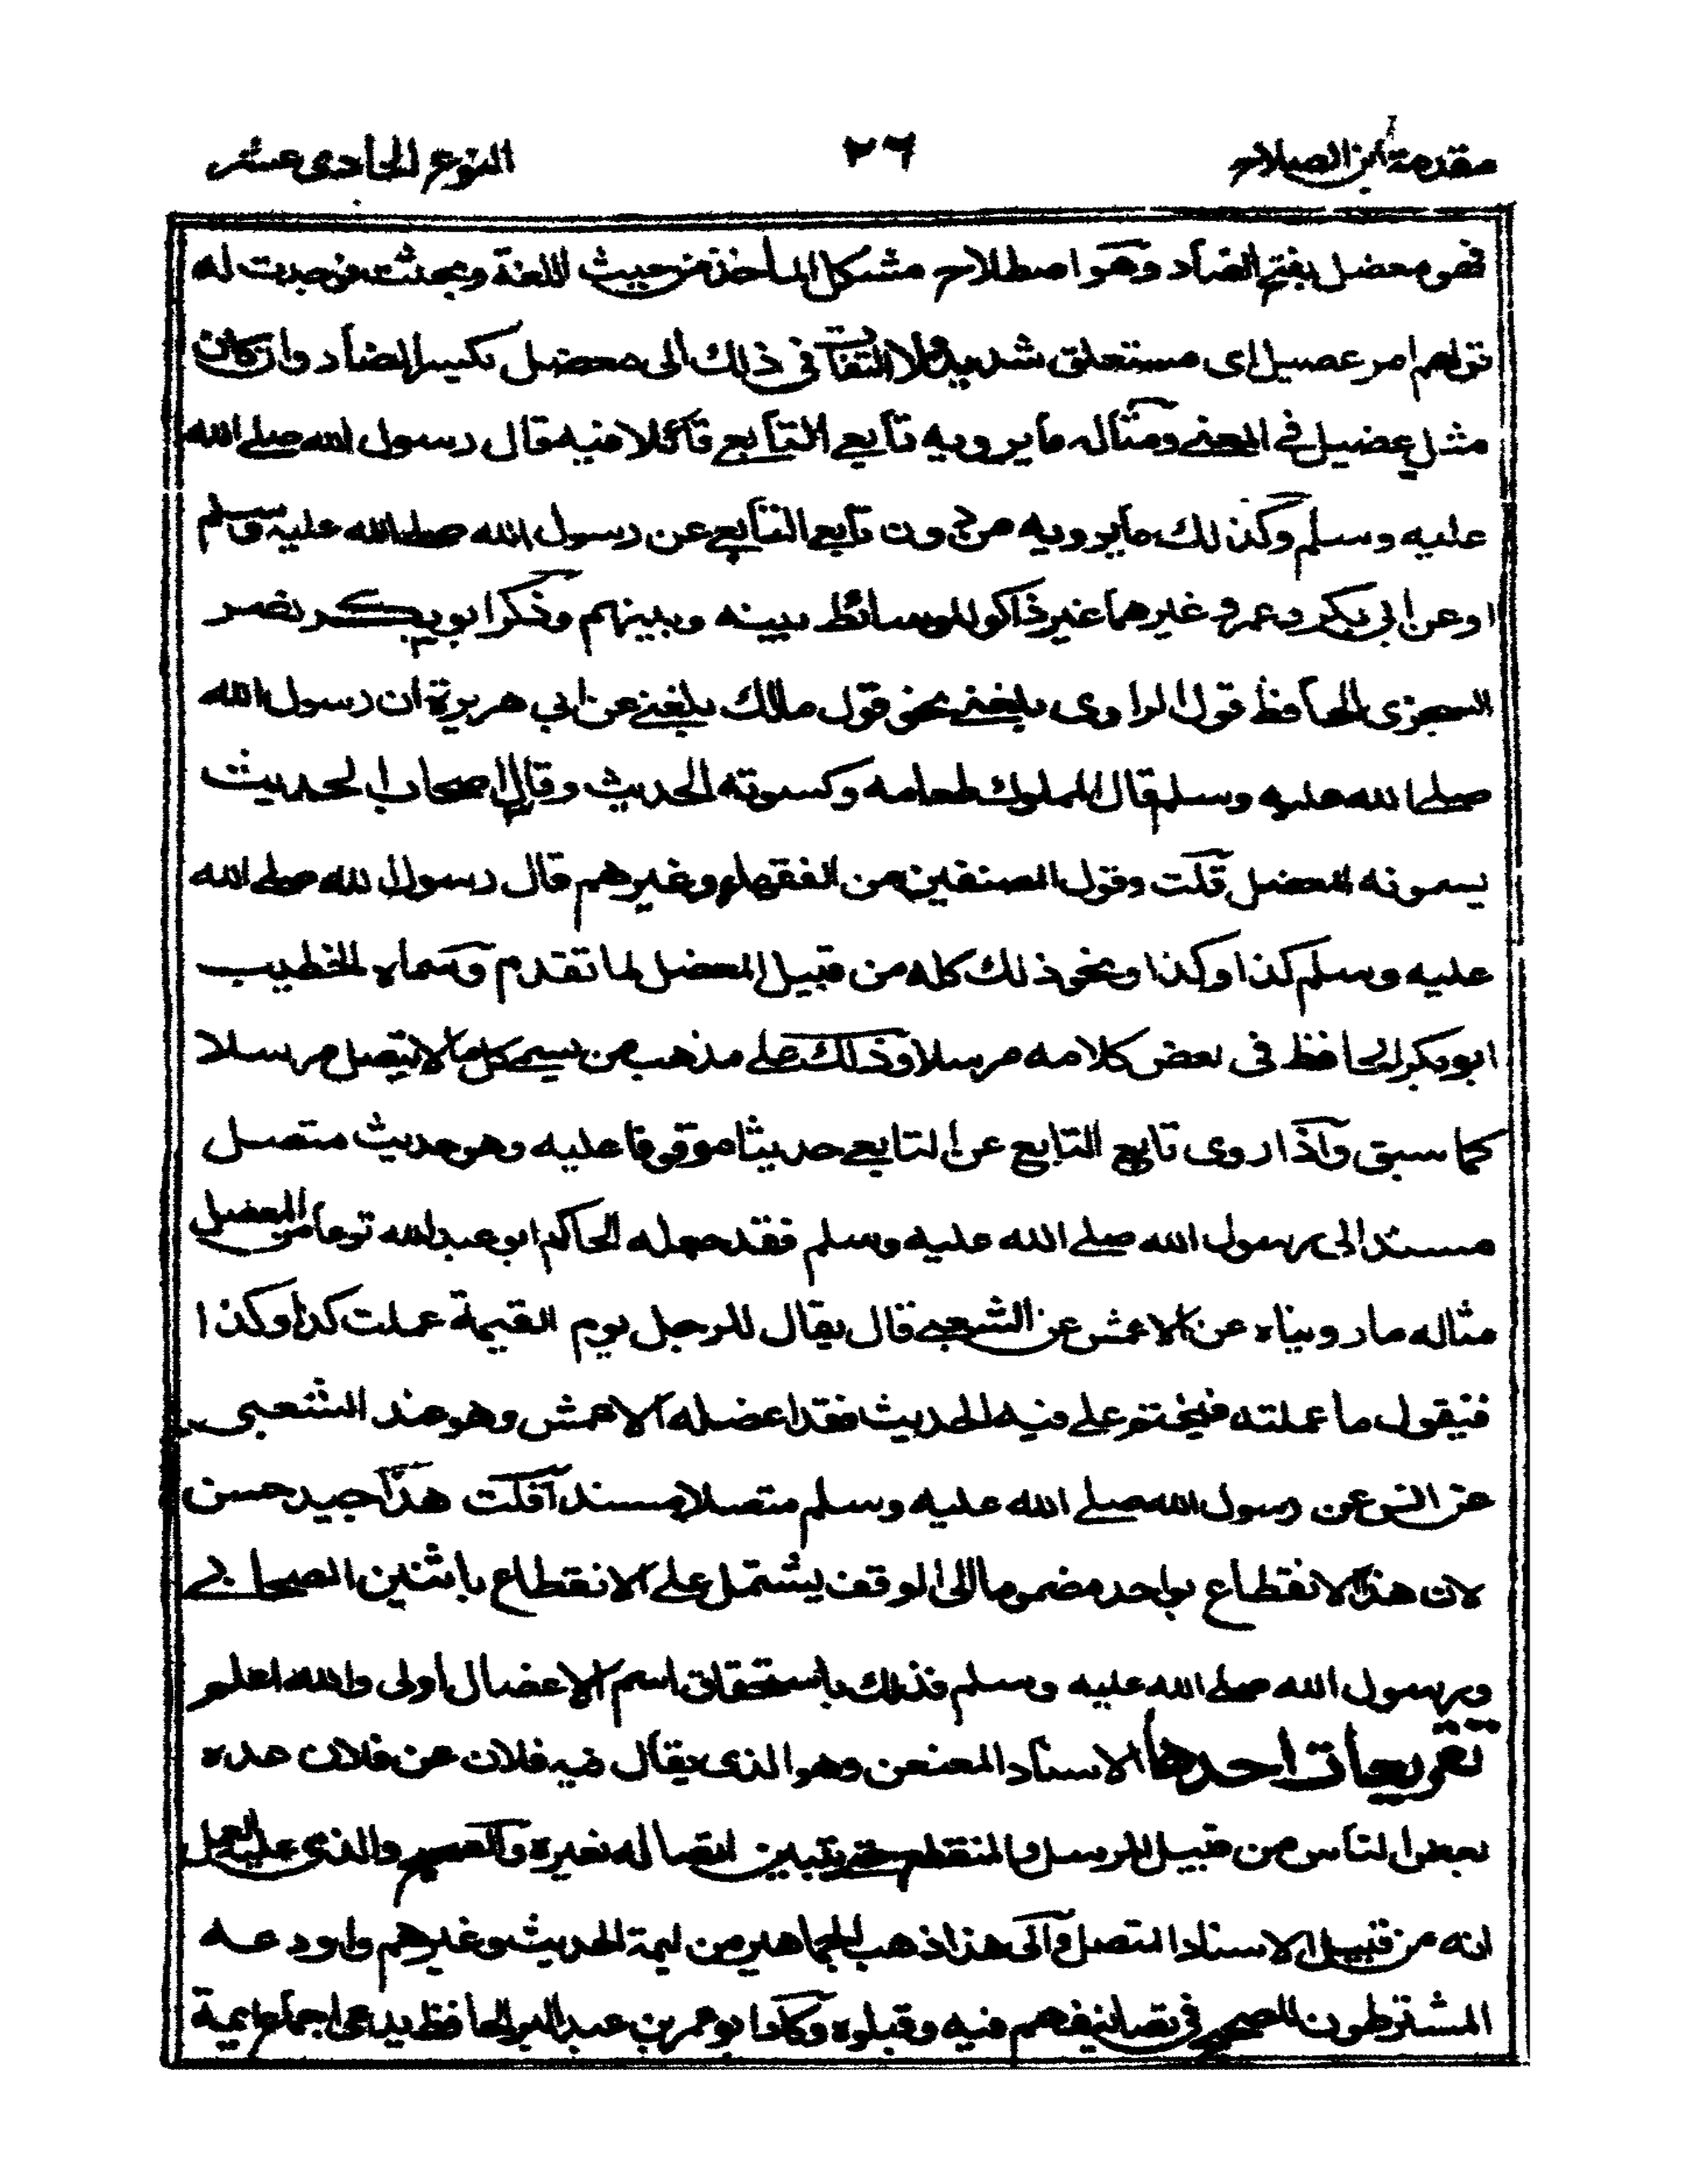 مقدمة ابن الصلاح
٢٦
النوع الحادی عشر
فهو معضل بفتح الضاد وهو اصطلاح مشكل الماخذ من حیث اللغة وبحثت فوجدت له
قولهم امر عضیل ای مستغلق شدید ولا التفات فی ذلك الی معضل بكسر الضاد وان كان
مثل عضیل فی المعنے ومثاله ما یرویه تابعے التابعے قائلا فیه قال رسول الله صلے الله
علیه وسلم وكذلك ما یرویه من دون تابعے التابعے عن رسول الله صلے الله علیه وسلم
او عن ابی بكر وعمر وغیرهما غیر ذاكر للوسائط بینه وبینهم وذكر ابو بكر نصر
السجزی الحافظ قول الراوی بلغنے نحو قول مالك بلغنے عن ابی هریرة ان رسول الله
صلے الله علیه وسلم قال للمملوك طعامه وكسوته الحدیث وقال اصحاب الحدیث
یسمونه المعضل قلت وقول المصنفین من الفقهاء وغیرهم قال رسول الله صلے الله
علیه وسلم كذا وكذا ونحو ذلك كله من قبیل المعضل لما تقدم وسماه الخطیب
ابو بكر الحافظ فی بعض كلامه مرسلا وذلك علے مذهب من یسمے كل ما لا یتصل مرسلا
كما سبق واذا روی تابع التابع عن التابعے حدیثا موقوفا علیه وهو حدیث متصل
مسند الی رسول الله صلے الله علیه وسلم فقد جعله الحاكم ابو عبد الله نوعا من المعضل
مثاله ما رویناه عن الاعمش عن الشعبے قال یقال للرجل یوم القیمة عملت كذا وكذا
فیقول ما عملته فیختم علی فیه الحدیث فقد اعضله الاعمش وهو عند الشعبی
عن انس عن رسول الله صلے الله علیه وسلم متصلا مسندا قلت هذا جید حسن
لان هذا الانقطاع بواحد مضموما الی الوقف یشتمل علے الانقطاع باثنین الصحابی
ورسول الله صلے الله علیه وسلم فذلك باستحقاق اسم الاعضال أولی والله اعلم
تفریعات احدها الاسناد المعنعن وهو الذی یقال فیه فلان عن فلان عده
بعض الناس من قبیل المرسل والمنقطع حتے یتبین اتصاله بغیره والصحیح والذی علیه العمل
انه من قبیل الاسناد المتصل والی هذا ذهب الجماهیر من ایمة الحدیث وغیرهم واودعه
المشترطون للصحیح فی تصانیفهم فیه وقبلوه وكاد ابو عمر بن عبد البر الحافظ یدعی اجماع ایمة